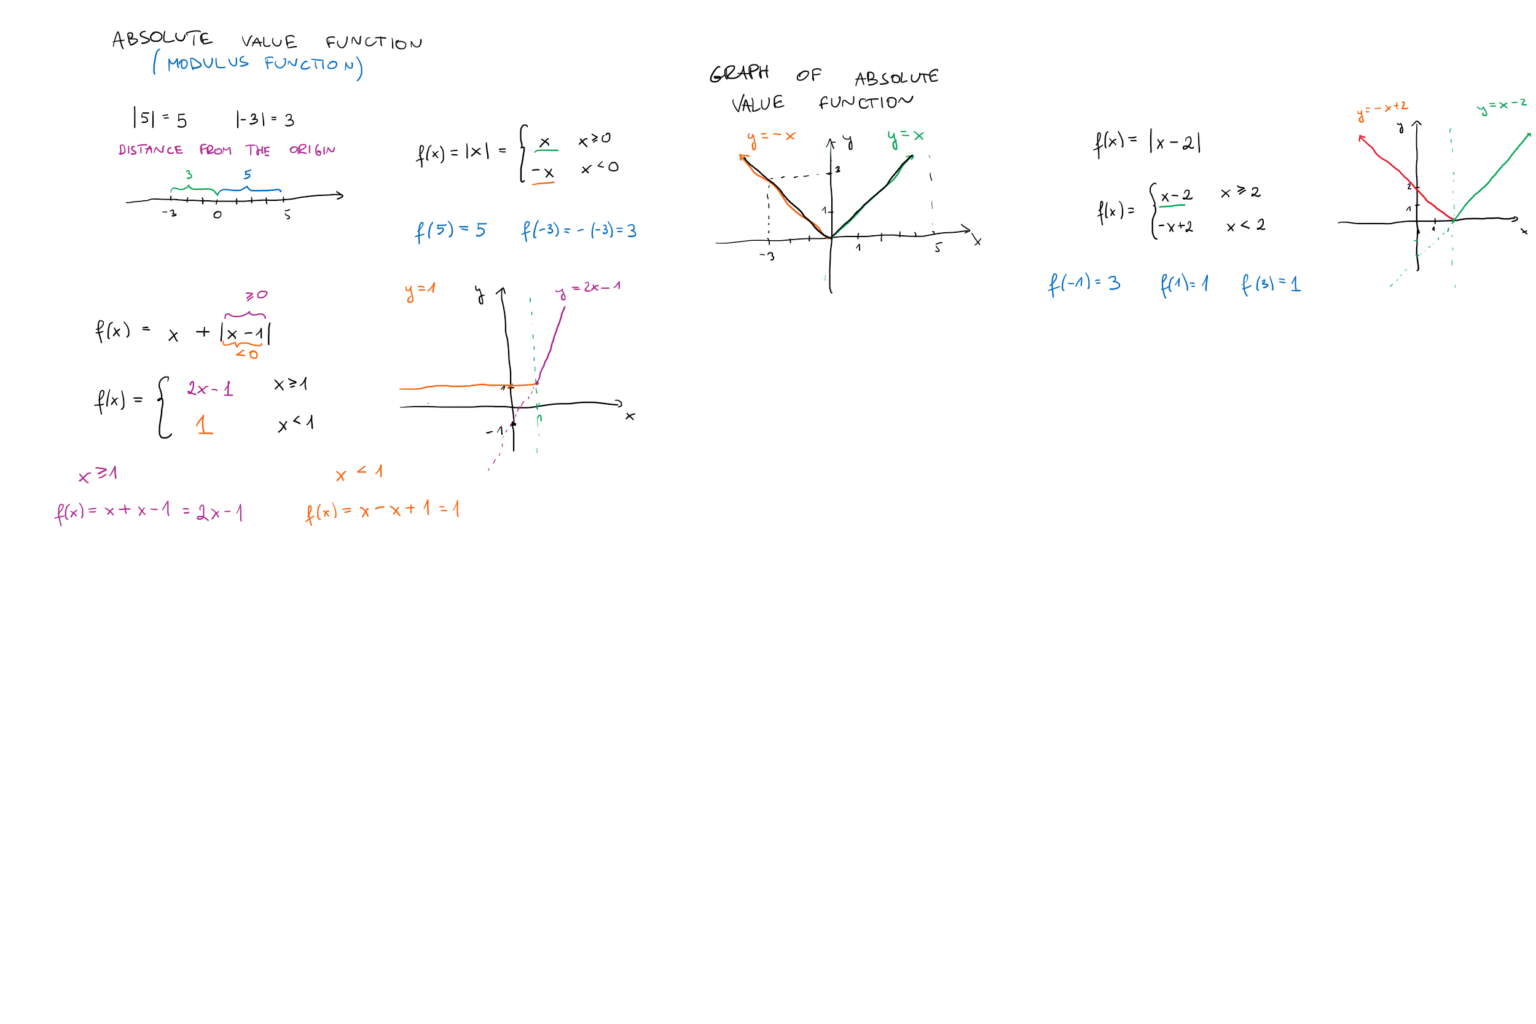 ABSOLUTE VALUE FUNCTION
(MODULUS FUNCTION)
|5| = 5 |-3| = 3
DISTANCE FROM THE ORIGIN
3 5
-3 0 5
f(x) = |x| = { x x ≥ 0
-x x < 0
f(5) = 5 f(-3) = -(-3) = 3
GRAPH OF ABSOLUTE
VALUE FUNCTION
y = -x y y = x
3
1
-3 1 5 x
f(x) = |x-2|
f(x) = { x-2 x ≥ 2
-x+2 x < 2
f(-1) = 3 f(1) = 1 f(3) = 1
y = -x+2 y = x-2
y
2
1
1
x
≥0
f(x) = x + |x-1|
<0
f(x) = { 2x-1 x ≥ 1
1 x < 1
y = 1 y y = 2x-1
1
x
-1
x ≥ 1
f(x) = x + x-1 = 2x-1
x < 1
f(x) = x - x + 1 = 1